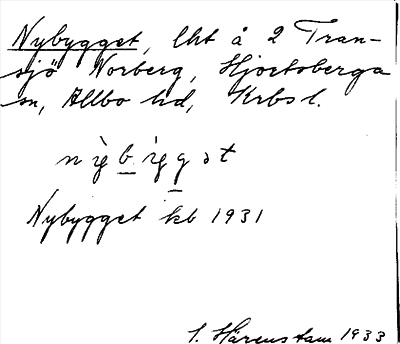 Nybygget, lht å 2 Tran-
sjö Norberg, Hjortsberga
sn, Allbo hd, Krbsl.
Nybygget kb 1931
S. Härenstam 1933